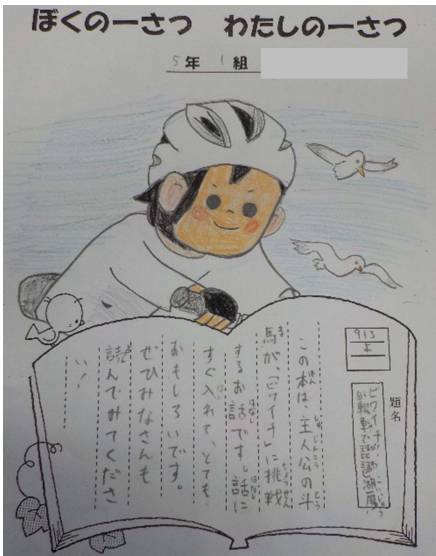 ぼくの一さつ　わたしの一さつ
5年 1組
題名
ビワイチ!
自転車で琵琶湖一周
913
よ
この本は、主人公の斗
馬が、「ビワイチ」に挑戦
するお話です。話に
すぐ入れて、とても
おもしろいです。
ぜひみなさんも
読んでみてくださ
い!